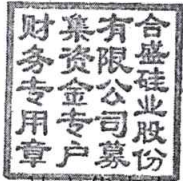 合盛硅业股份
有限公司募
集资金专户
财务专用章